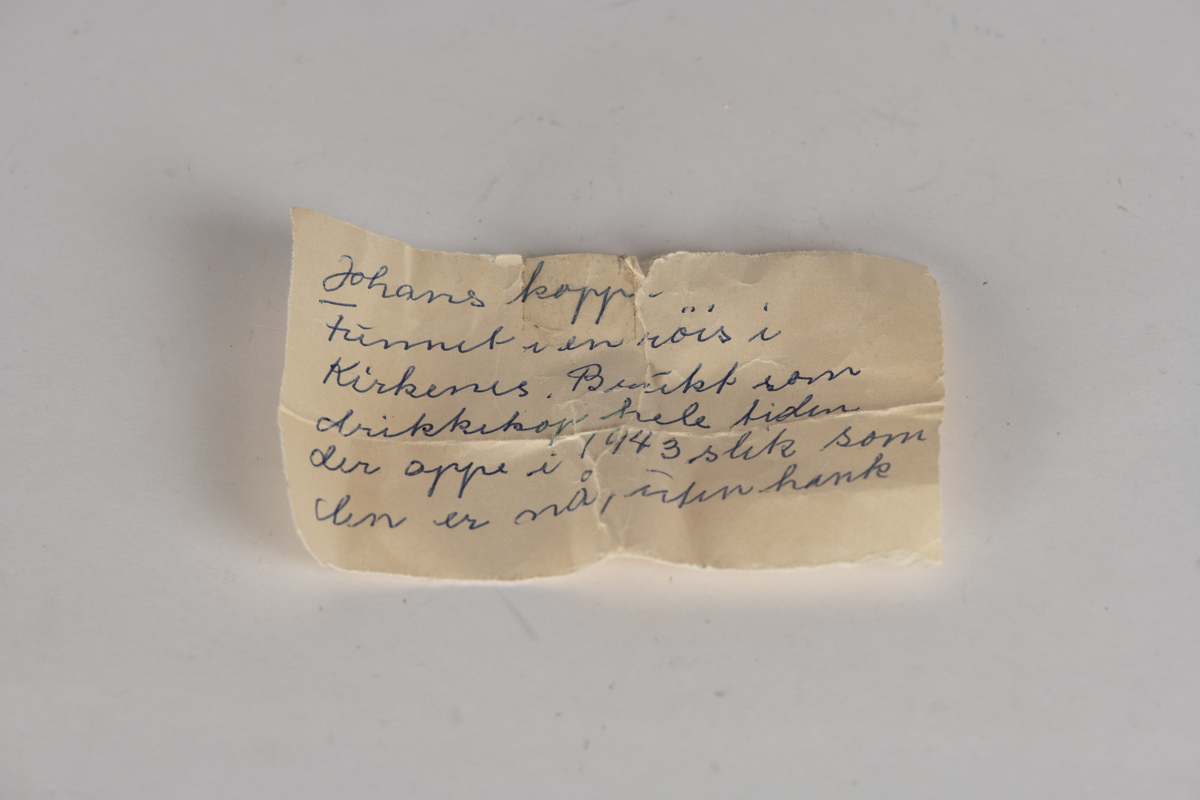 Johans kopp.
Funnet i en röis i
Kirkenes. Brukt som
drikkekop hele tiden
der oppe i 1943 slik som
den er nå, uten hank